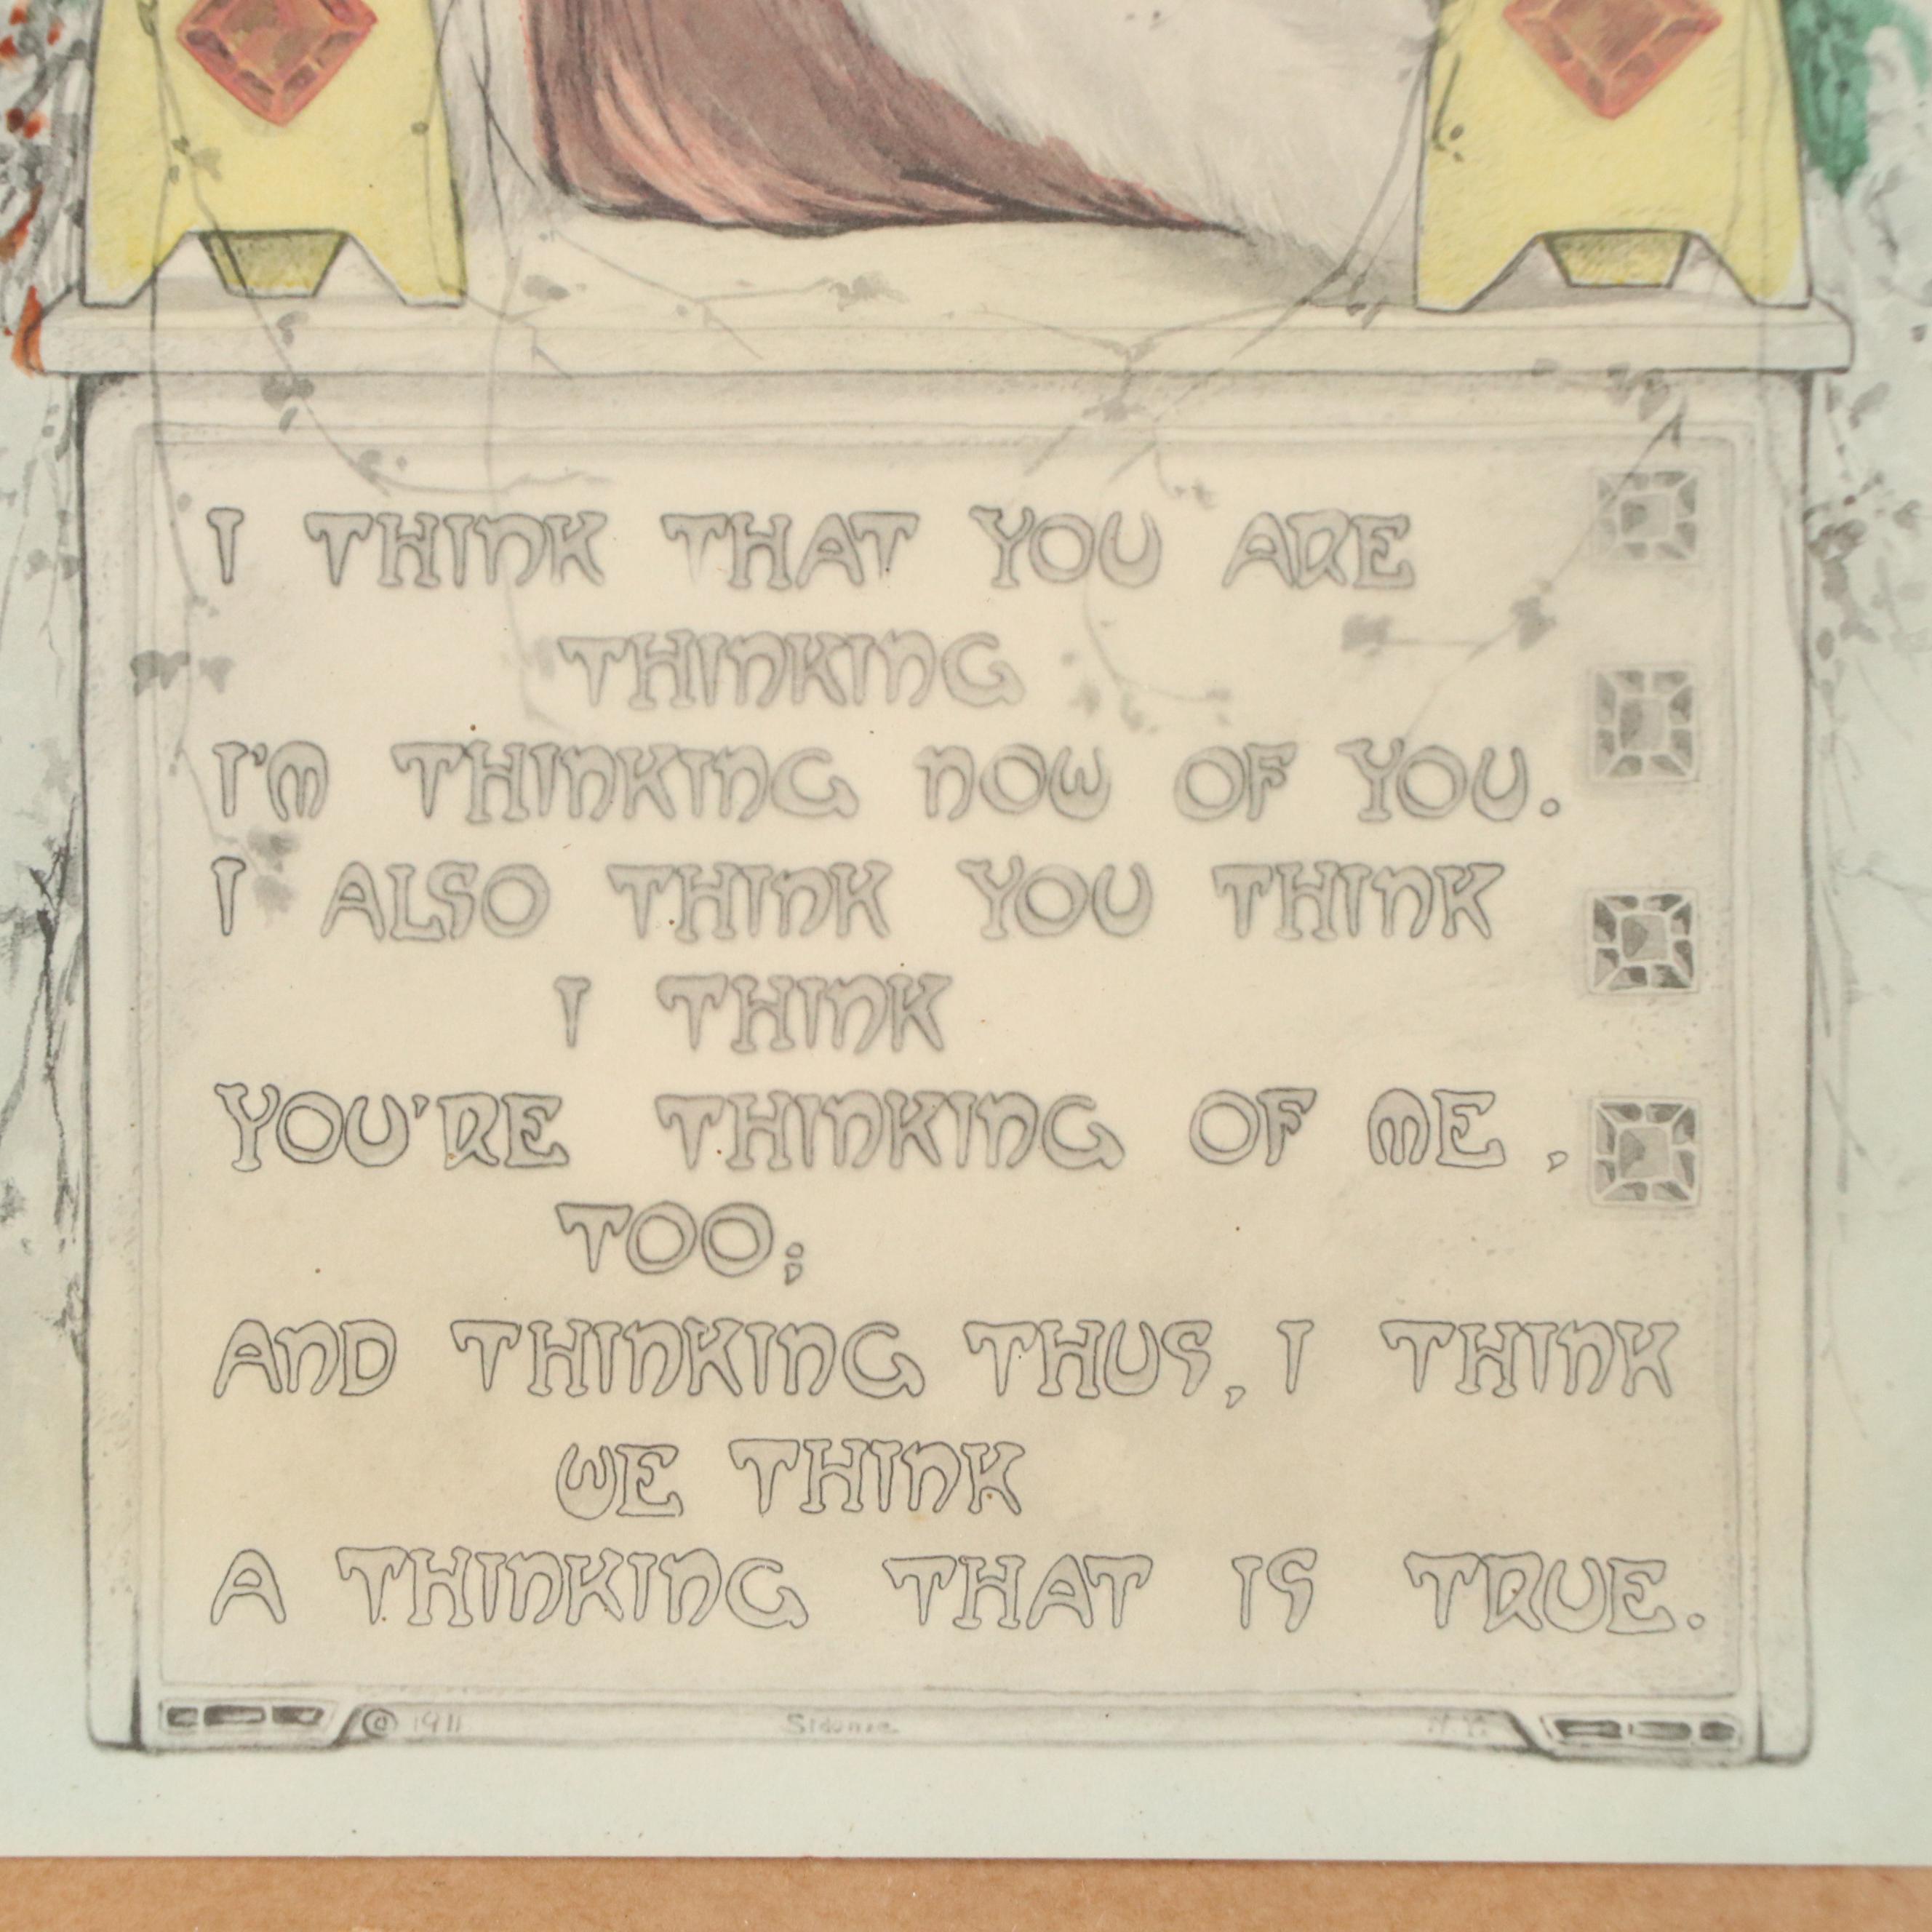 I THINK THAT YOU ARE
THINKING
I'M THINKING NOW OF YOU.
I ALSO THINK YOU THINK
I THINK
YOU'RE THINKING OF ME,
TOO;
AND THINKING THUS, I THINK
WE THINK
A THINKING THAT IS TRUE.
© 1911 Sidonie N.Y.